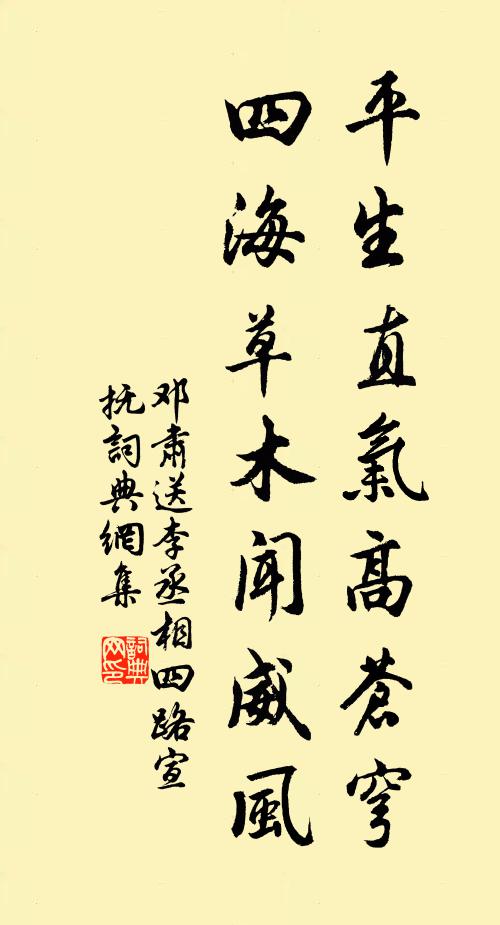 平生直氣高蒼穹
四海草木聞威風
邓肅送李丞相四路宣
抚詞典網集
詞典
网印